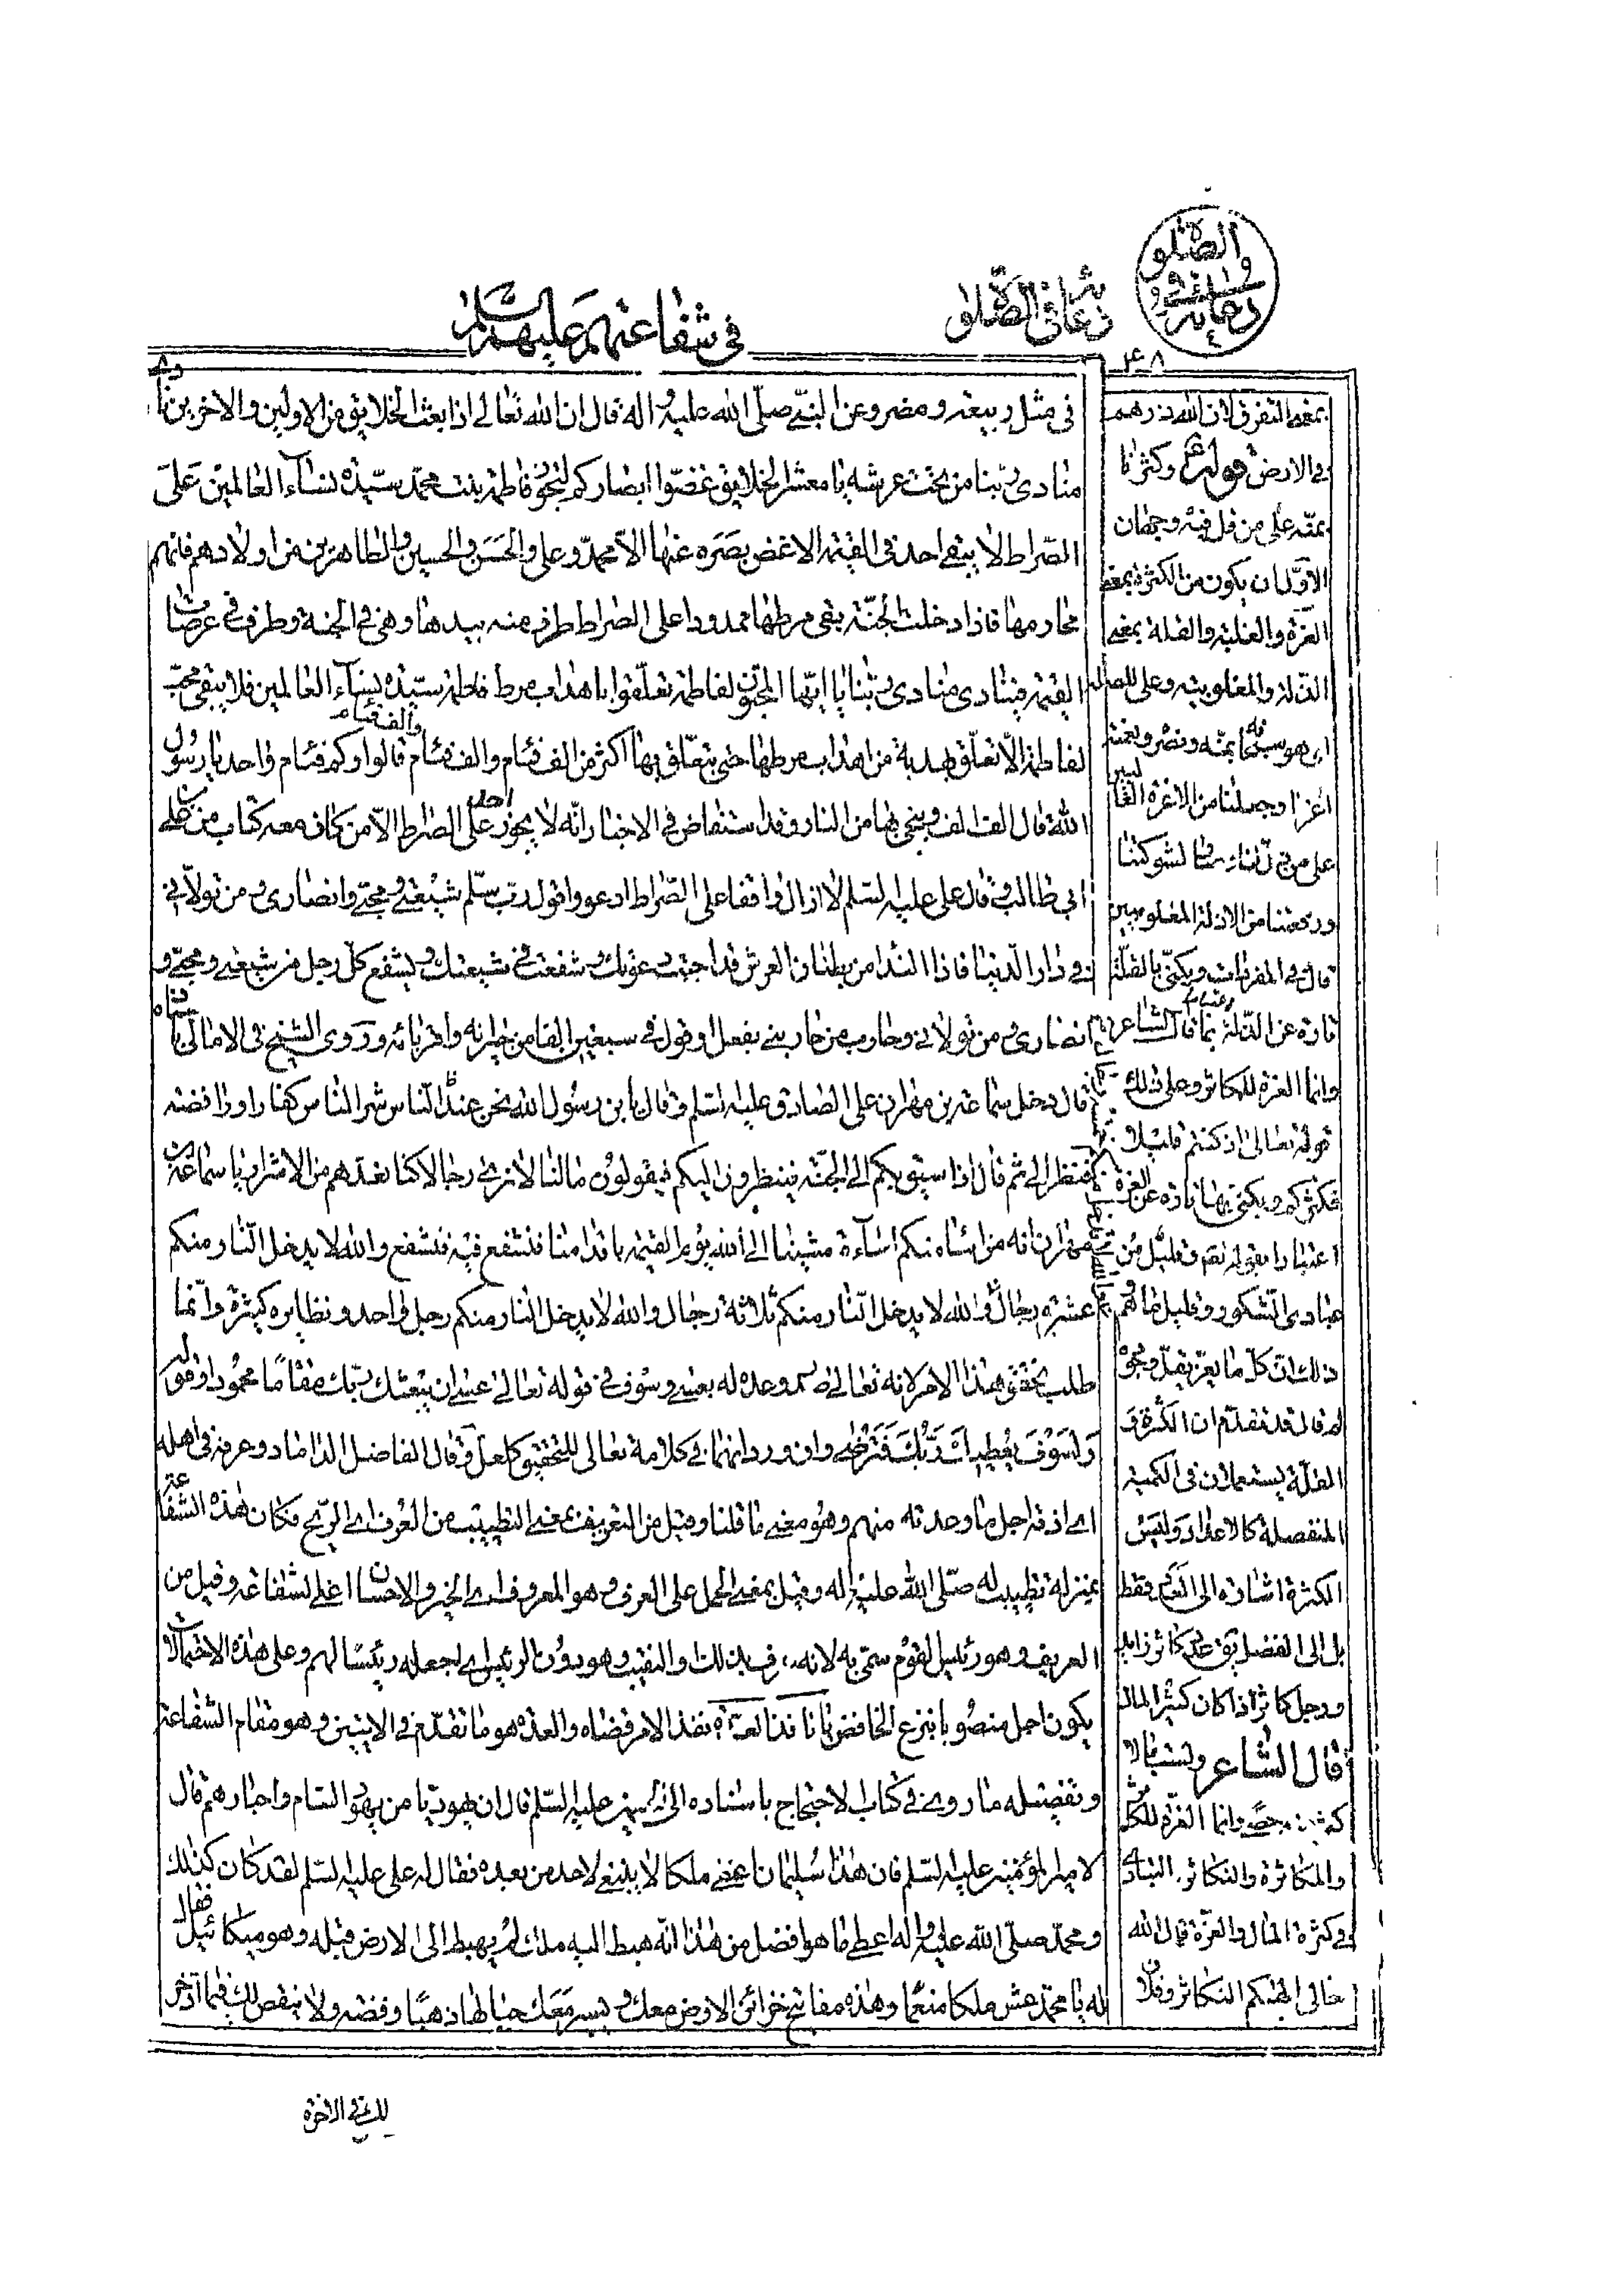 الصلو
وفي
دعائه
دعائه في الصلواة
في شفاعتهم عليهم السلام
٤٨
في مثل ربيعة ومضر وعن النبي صلى الله عليه واله قال ان الله تعالى اذا بعث الخلايق من الاولين والاخرين نادى
منادى ربنا من تحت عرشه يا معشر الخلايق غضوا ابصاركم لتجوز فاطمة بنت محمد سيدة نساء العالمين على
الصراط لا يبقى احد في القيمة الا غض بصره عنها الا محمد وعلى والحسن والحسين والطاهرين من اولادهم فانهم
محارمها فاذا دخلت الجنة بقى مرطها ممدودا على الصراط طرف منه بيدها وهي في الجنة وطرف في عرصات
القيمة فينادى منادى ربنا يا ايها المحبون لفاطمة تعلقوا باهداب مرط فاطمة سيدة نساء العالمين فلا يبقى محب
لفاطمة الا تعلق بهدبة من اهداب مرطها حتى يتعلق بها اكثر من الف فئام والف فئام والف فئام قالوا وكم فئام واحد يا رسول
الله قال الف الف وينجى بها من النار وقد استفاض في الاخبار انه لا يجوز احد على الصراط الا من كان معه كتاب من على بن
ابي طالب وقال على عليه السلم لا ازال واقفا على الصراط ادعو واقول رب سلم شيعتي ومحبي وانصاري ومن تولاني
في دار الدنيا فاذا الندا من بطنان العرش قد اجيبت دعوتك وشفعت في شيعتك ويشفع كل رجل من شيعتي ومحبي و
انصاري ومن تولاني وحارب من حاربني بفعل او قول في سبعين الفا من جيرانه واقربائه وروى الشيخ في الامالي باسناده
قال دخل سماعة بن مهران على الصادق عليه السلم فقال يا بن رسول الله نحن عند الناس شر الناس كفارا ورافضة
فنظر الي ثم قال اذا سيق بكم الى الجنة فينظرون اليكم فيقولون ما لنا لا نرى رجالا كنا نعدهم من الاشرار يا سماعة بن
مهران انه من اساء منكم اساءة مشينا الى الله يوم القيمة باقدامنا فنشفع فيه فنشفع والله لا يدخل النار منكم
عشرة رجال والله لا يدخل النار منكم ثلاثة رجال والله لا يدخل النار منكم رجل واحد ونظايره كثيرة وانما
طلب تحقق هذا الامر لانه تعالى وعده له بعسى وسوف في قوله تعالى عسى ان يبعثك ربك مقاما محمودا وقوله
ولسوف يعطيك ربك فترضى وان ورد انهما في كلامه تعالى للتحقيق كلعل وقال الفاضل الداماد وعرفه في اهله
اى اذقه اجل ما وعدته منهم وهو معنى ما قلنا وقيل من التعريف بمعنى التطييب من العرف اى الريح فكان هذه الشفاعة
بمنزلة تطييب له صلى الله عليه واله وقيل بمعنى الحمل على العرف وهو المعروف اى الخير والاحسان اعنى الشفاعة وقيل من
العريف وهو رئيس القوم سمي به لانه عرف بذلك والنقيب وهو دون الرئيس اى لجعله رئيسا لهم وعلى هذه الاحتمالات
يكون اجل منصوبا بنزع الخافض يا نافذ العدة نفذ الامر قضاه والعدة هو ما تقدم في الايتين وهو مقام الشفاعة
وتفصيله ما روى في كتاب الاحتجاج باسناده الى عليه السلم قال ان يهوديا من يهود الشام واحبارهم قال
لامير المؤمنين عليه السلم فان هذا سليمان اعطى ملكا لا ينبغى لاحد من بعده فقال له على عليه السلم لقد كان كذلك
ومحمد صلى الله عليه واله اعطى ما هو افضل من هذا انه هبط اليه ملك لم يهبط الى الارض قبله وهو ميكائيل فقال
له يا محمد عش ملكا منعما وهذه مفاتيح خزائن الارض معك ويسير معك جبالها ذهبا وفضة ولا ينقص لك فيما ادخر
لك في الاخرة
بمعنى التفرق لان الله ذرهم
في الارض قوله وكثرنا
بمنه على من قل فيه وجهان
الاول ان يكون من الكثرة بمعنى
العزة والغلبة والقلة بمعنى
الذلة والمغلوبية وعلى للصلة
اى هو سبحانه بمنه ونصره ونعمته
اعزنا وجعلنا من الاعزة الغالبين
على من ذللنا لشوكتنا
ورفعتنا من الاذلة المغلوبين
قال في المفردات ويكنى بالقلة
تارة عن الذلة اعتبارا بما قال الشاعر
وانما العزة للكاثر وعلى ذلك
قوله تعالى اذ كنتم قليلا
فكثركم ويكنى بها تارة عن العزة
اعتبارا بقوله تعم وقليل من
عبادى الشكور وقليل ما هم
ذلك ان كل ما يعز يقل وجوده
قال قد تقدم ان الكثرة و
القلة يستعملان في الكمية
المنفصلة كالاعداد وليس
الكثرة اشارة الى العدد فقط
بل الى الفضل يق عدد كاثر زايد
ورجل كاثر اذا كان كثير المال
قال الشاعر ولست بالا
كثر منهم حصى وانما العزة للكاثر
والمكاثرة والتكاثر التبارى
في كثرة المال والعزة قال الله
تعالى الهيكم التكاثر وفلان